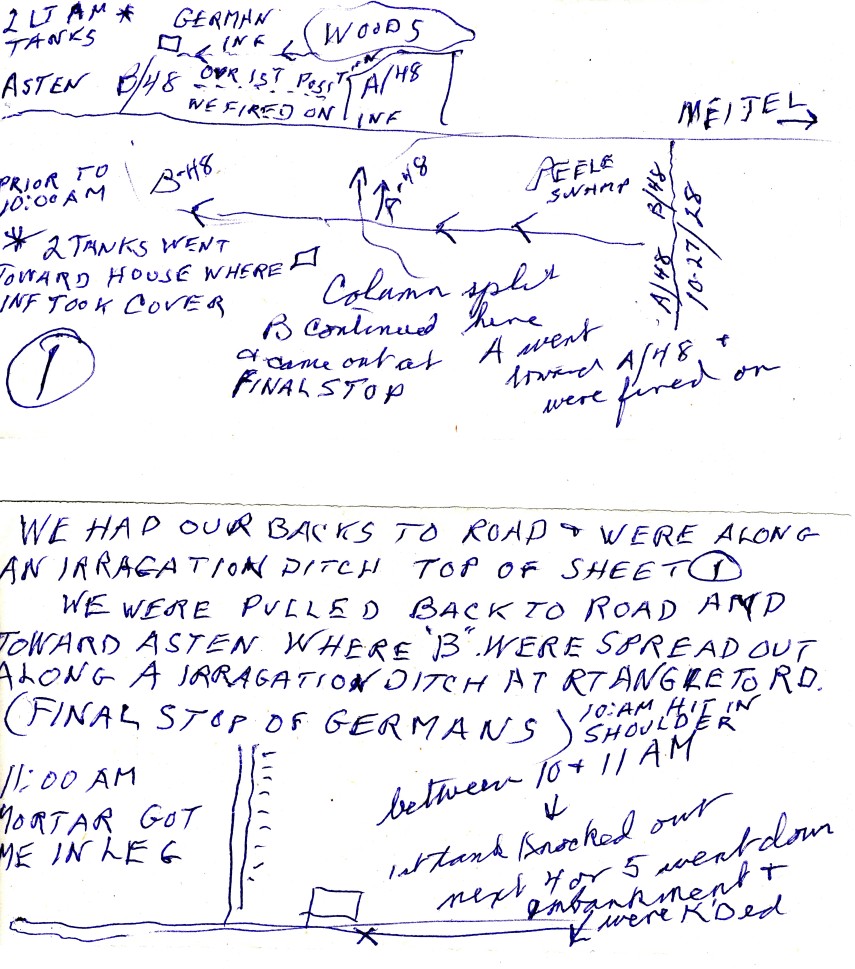 2 LT AM *
TANKS
GERMAN
INF
WOODS
ASTEN
B/48
OUR 1ST POSITION
WE FIRED ON
A/48
INF
MEIJEL
PRIOR TO
10:00 AM
B-48
A-48
PEELE
SWAMP
A/48 B/48
10-27/28
* 2 TANKS WENT
TOWARD HOUSE WHERE
INF TOOK COVER
Column split
here
B continued
& came out at
FINAL STOP
A went
toward A/48 +
were fired on
1
WE HAD OUR BACKS TO ROAD & WERE ALONG
AN IRRAGATION DITCH TOP OF SHEET 1
WE WERE PULLED BACK TO ROAD AND
TOWARD ASTEN WHERE "B" WERE SPREAD OUT
ALONG A IRRAGATION DITCH AT RT ANGLE TO RD.
(FINAL STOP OF GERMANS)
10:AM HIT IN
SHOULDER
11:00 AM
MORTAR GOT
ME IN LEG
between 10 + 11 AM
1st tank knocked out
next 4 or 5 went down
embankment +
were K'Ded